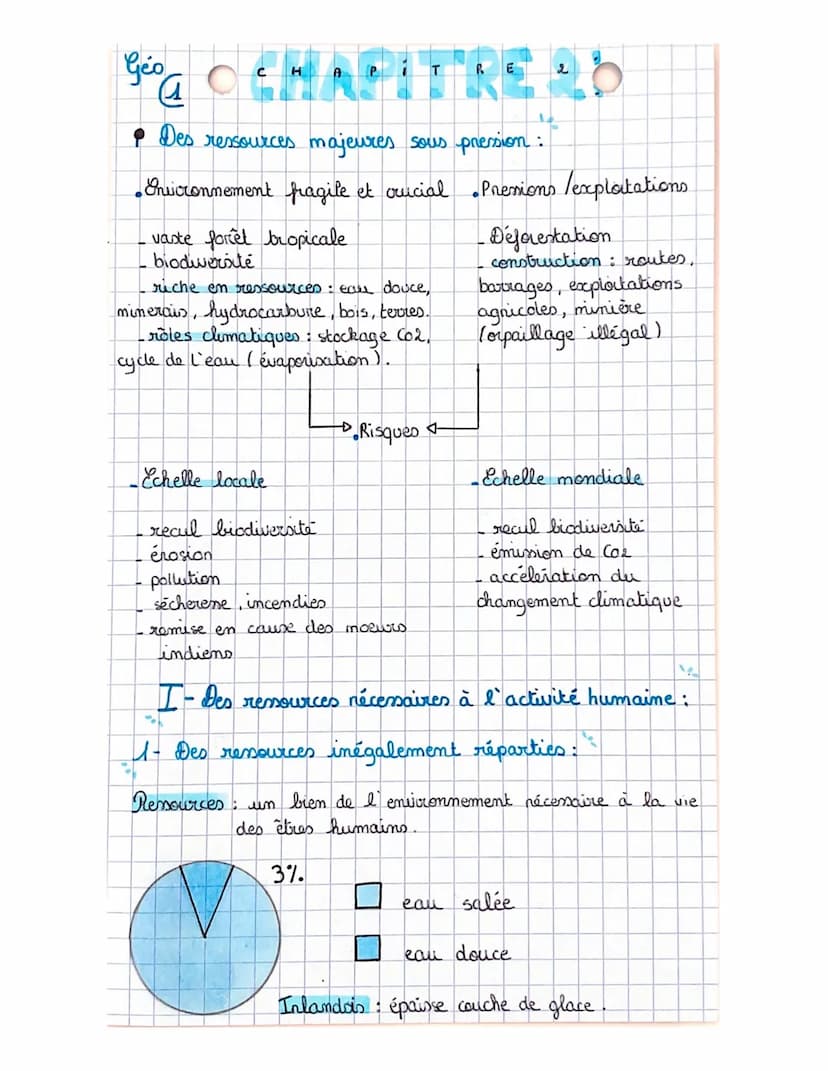 Géo
1
CHAPITRE 2:
Des ressources majeures sous pression :
. Environnement fragile et crucial
- vaste forêt tropicale
- biodiversité
- riche en ressources : eau douce,
minerais, hydrocarbure, bois, terres.
- rôles climatiques : stockage CO2,
cycle de l'eau (évaporisation).
. Pressions / exploitations
- Déforestation
- construction : routes,
barrages, exploitations
agricoles, minière
(orpaillage illégal)
. Risques
- Echelle locale
- recul biodiversité
- érosion
- pollution
- sécheresse, incendies
- remise en cause des moeurs
indiens
- Echelle mondiale
- recul biodiversité
- émission de CO2
- accélération du
changement climatique
I - Des ressources nécessaires à l'activité humaine :
1 - Des ressources inégalement réparties :
Ressources : un bien de l'environnement nécessaire à la vie
des êtres humains.
3%.
eau salée
eau douce
Inlandsis : épaisse couche de glace.